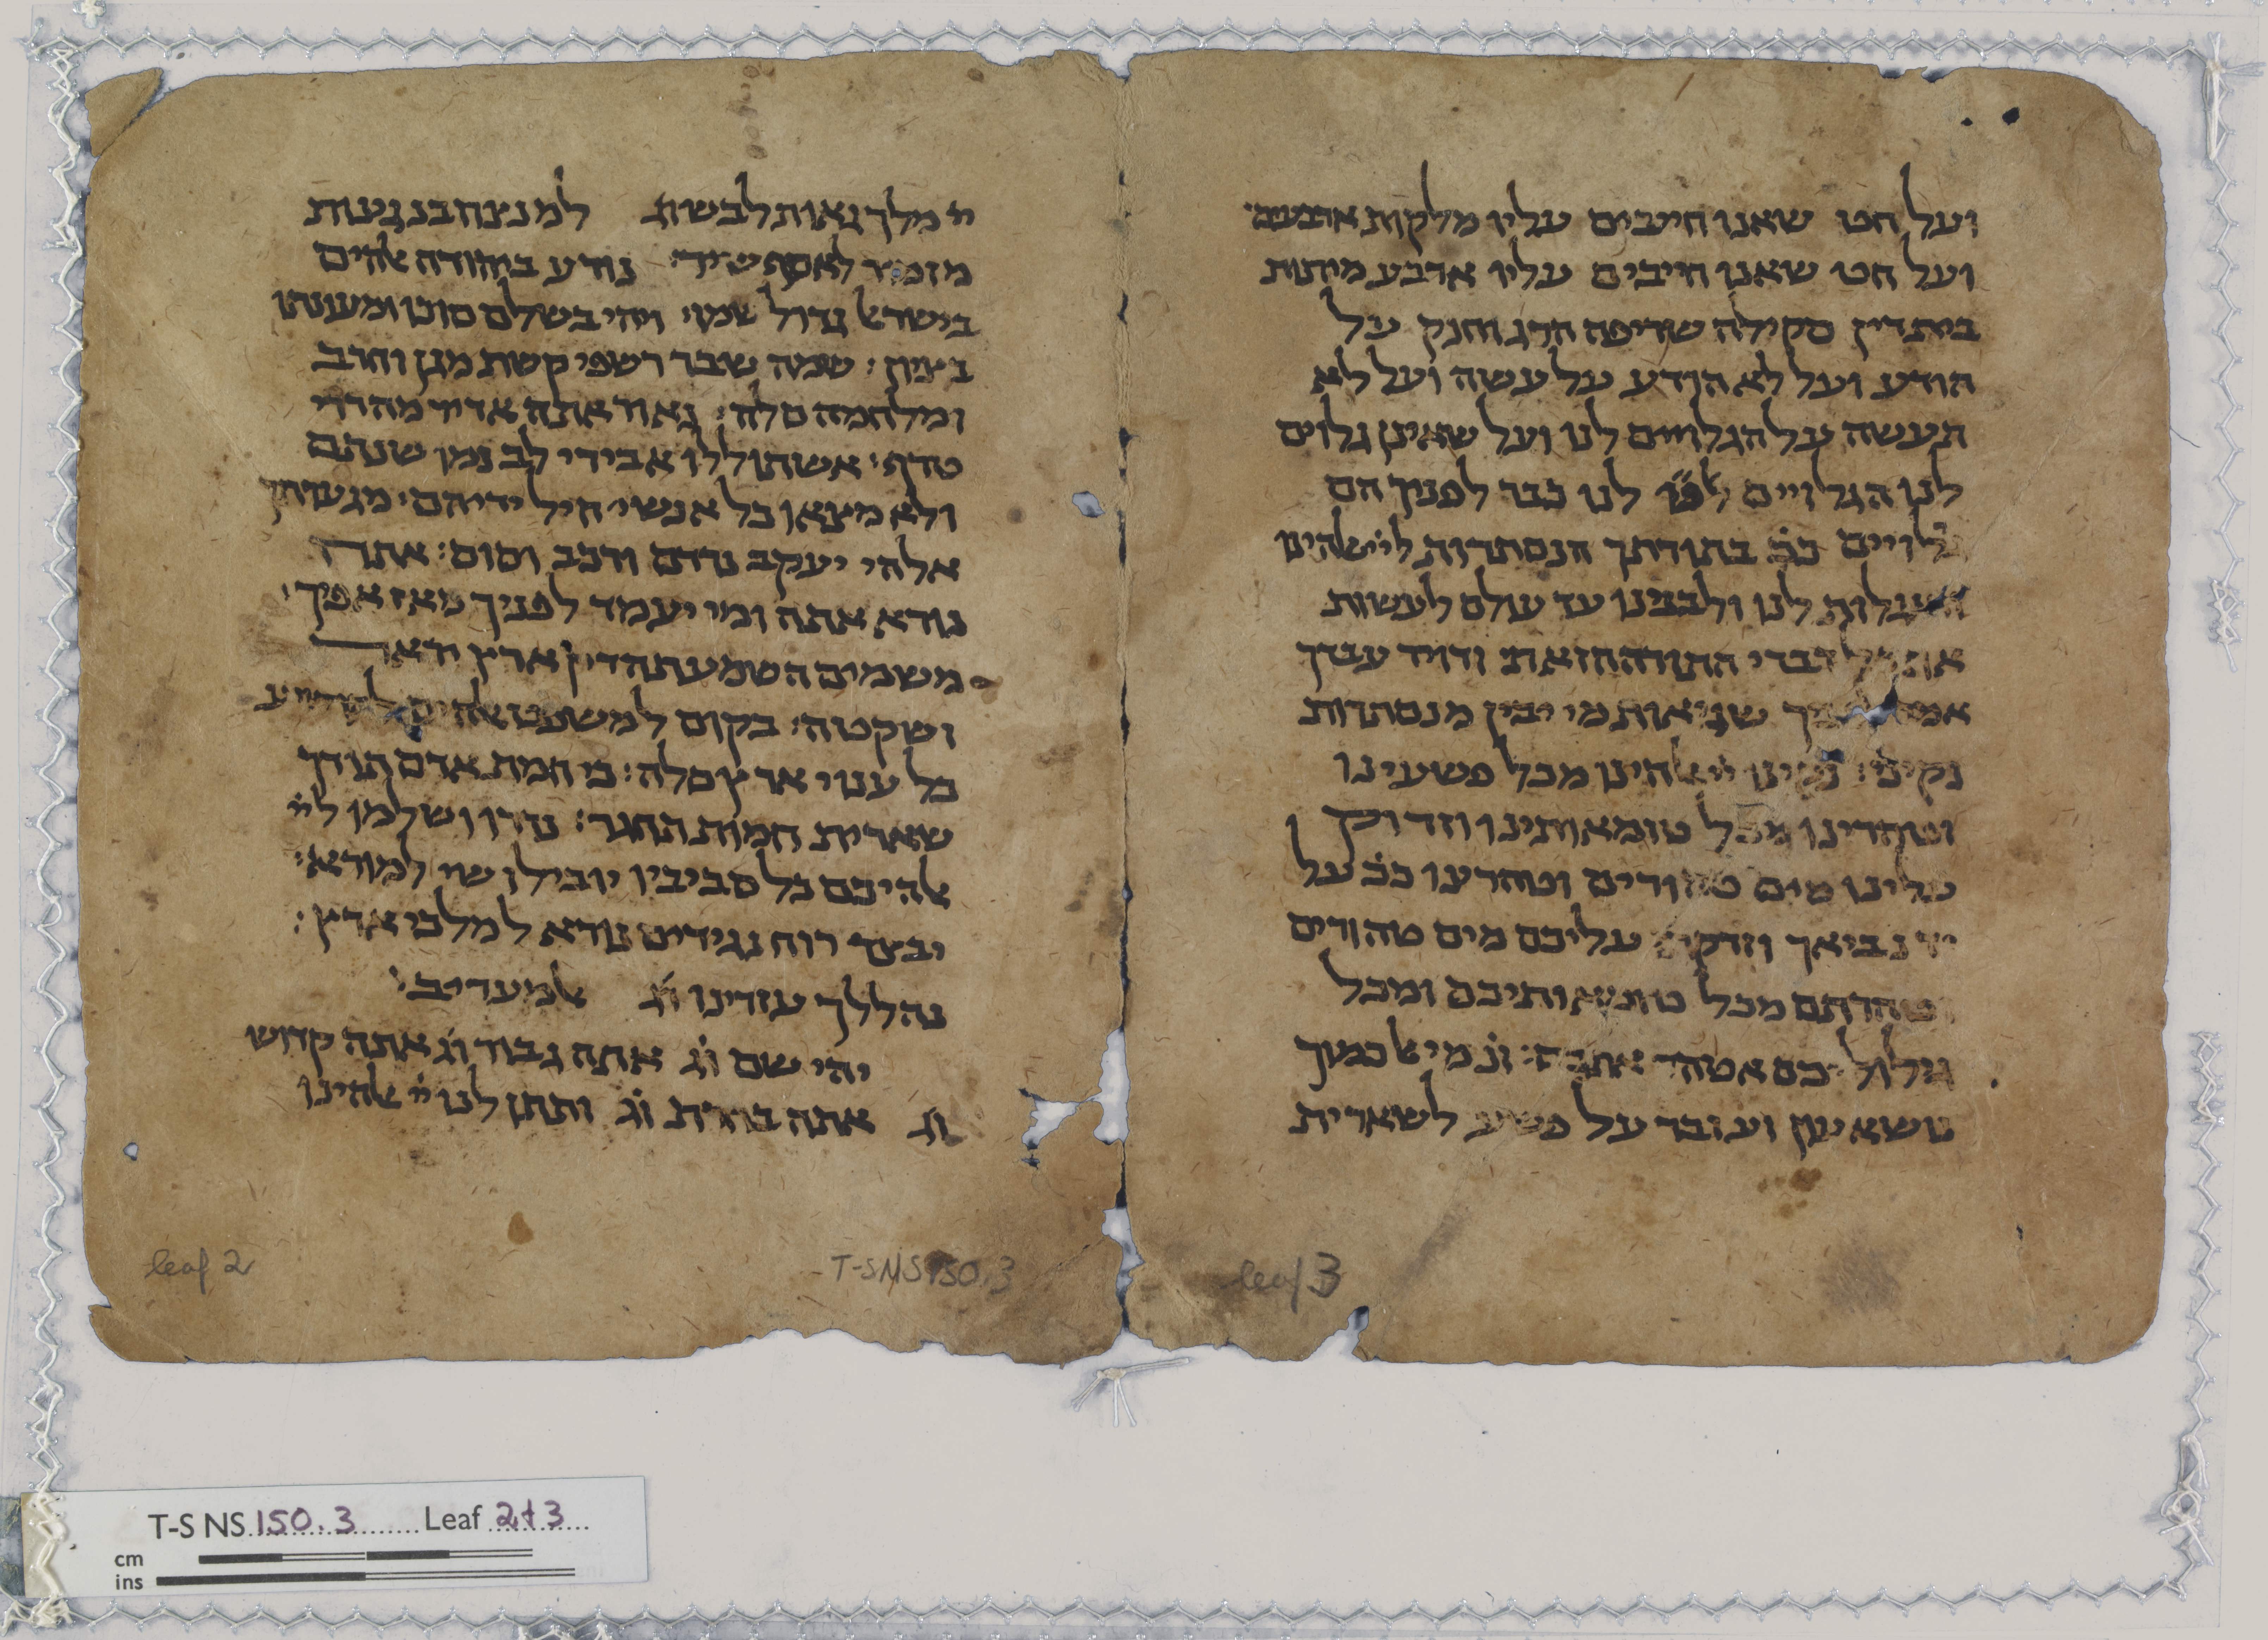 ועל חט שאנו חיבים עליו מלקות ארבעים
ועל חט שאנו חיבים עליו ארבע מיתות
בית דין סקילה שריפה הרג וחנק על
הודע ועל לא הודע על עשה ועל לא
תעשה על הגלויים לנו ועל שאינן גלוים
לנו הגלויים לנו כבר לפניך הם
גלויים ככ בתורתך הנסתרות ליי אלהינו
והנגלות לנו ולבנינו עד עולם לעשות
את כל דברי התורה הזאת ודויד עבדך
אמר שגיאות מי יבין מנסתרות
נקיני נקינו יי אלהינו מכל פשעינו
וטהרינו מכל טומאותינו וזרוק
עלינו מים טהורים וטהרנו ככ על
יד נביאך וזרקתי עליכם מים טהורים
וטהרתם מכל טומאותיכם ומכל
גילוליכם אטהר אתכם ונ מי אל כמוך
נושא עון ועובר על פשע לשארית
יי מלך גאות לבשת למנצח בנגינות
מזמור לאסף שיר נודע ביהודה אלהים
בישראל גדול שמו ויהי בשלם סוכו ומעונתו
בציון שמה שבר רשפי קשת מגן וחרב
ומלחמה סלה נאור אתה אדיר מהררי
טרף אשתוללו אבירי לב נמו שנתם
ולא מצאו כל אנשי חיל ידיהם מגערתך
אלהי יעקב נרדם ורכב וסוס אתה
נורא אתה ומי יעמד לפניך מאז אפיך
משמים השמעת הדין ארץ יראה
ושקטה בקום למשפט אלהים להושיע
כל ענוי ארץ סלה כי חמת אדם תודך
שארית חמות תחגר נדרו ושלמו ליי
אלהיכם כל סביביו יובילו שי למורא
יבצר רוח נגידים נורא למלכי ארץ
נהללך עוזרינו וג אלמעריב
יהי שם וג אתה גבור וג אתה קדוש
וג אתה בחרת וג ותתן לנו יי אלהינו
leaf 2
T-S NS 150.3
leaf 3
T-S NS 150.3 Leaf 2+3
cm
ins